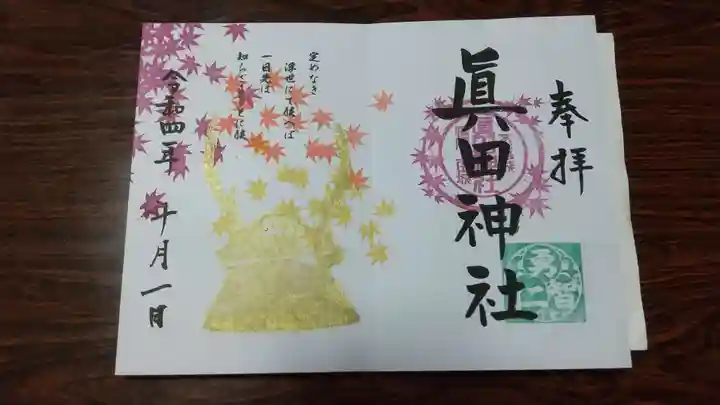 奉拝
眞田神社
勇
智
仁
定めなき
浮世にて候へば
一日先は
知らざることに候
令和四年
年月一日